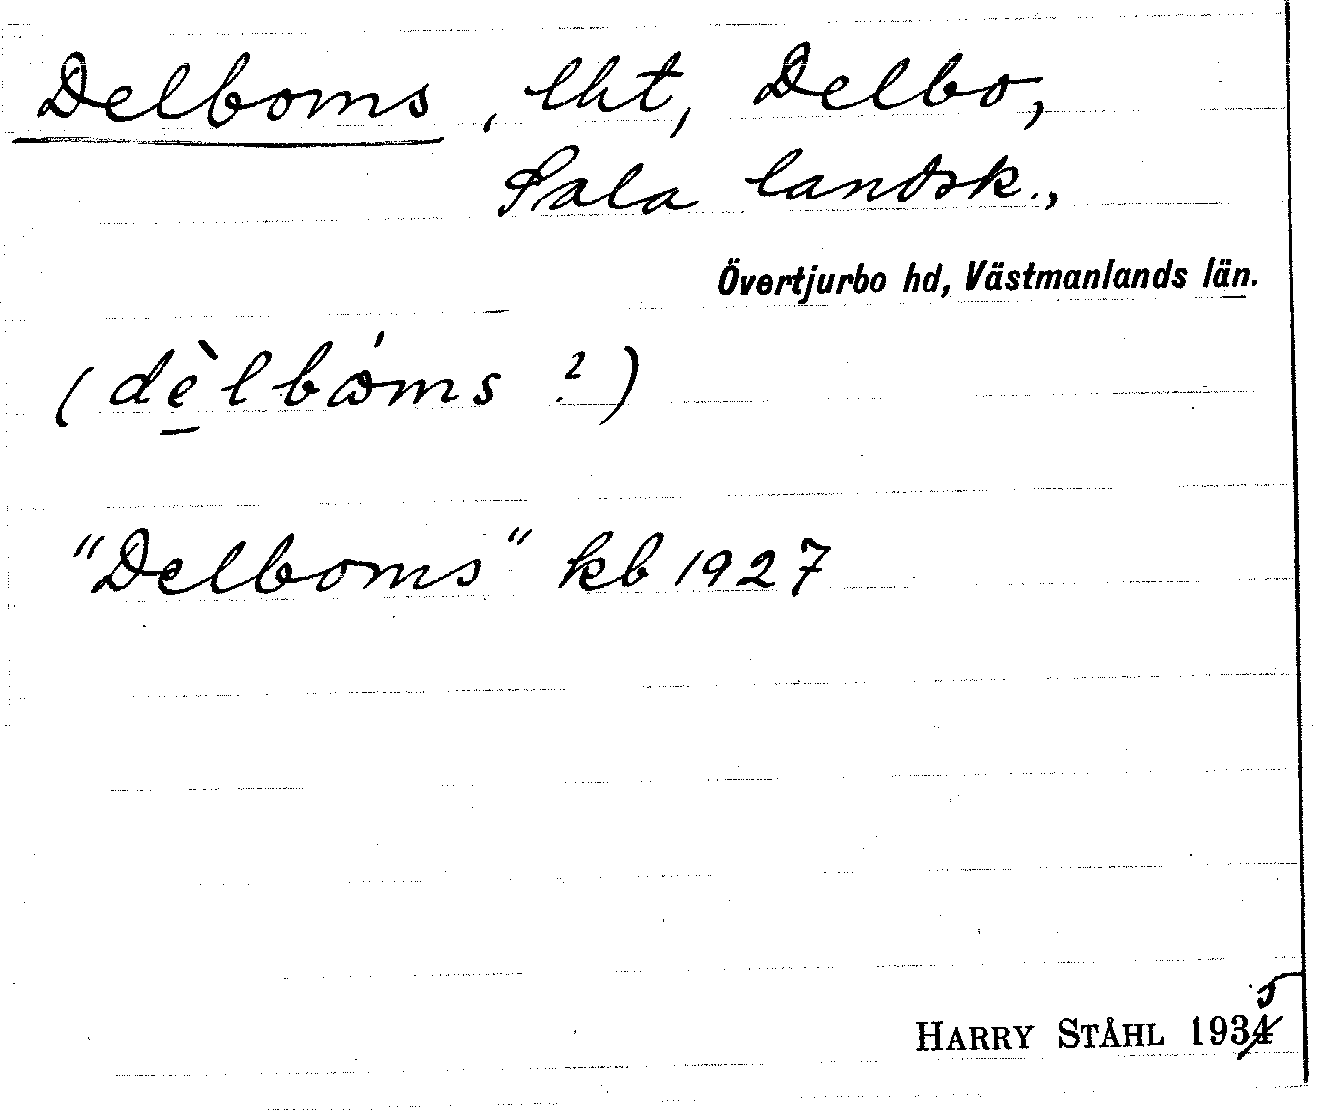 Delboms, lht, Delbo,
Sala landsk.,
Övertjurbo hd, Västmanlands län.
(dèlbóms ?)
"Delboms" kb 1927
HARRY STÅHL 1935